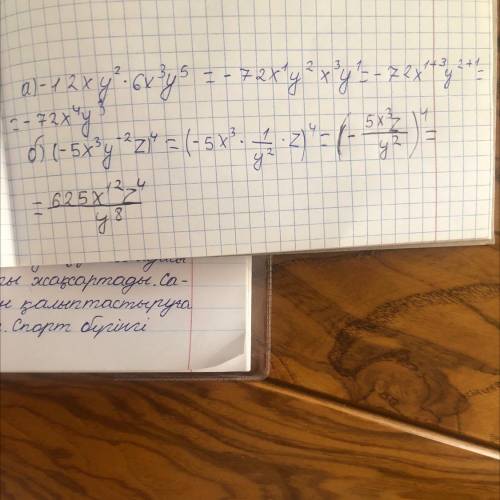 а) -12xy²·6x³y⁵ = -72x¹y²x³y¹ = -72x¹⁺³y²⁺¹ =
= -72x⁴y³
б) (-5x³y⁻²z)⁴ = (-5x³·1/y²·z)⁴ = (-5x³z/y²)⁴ =
= 625x¹²z⁴/y⁸
жақсартады. Са-
қалыптастыруға
. Спорт бүгінгі